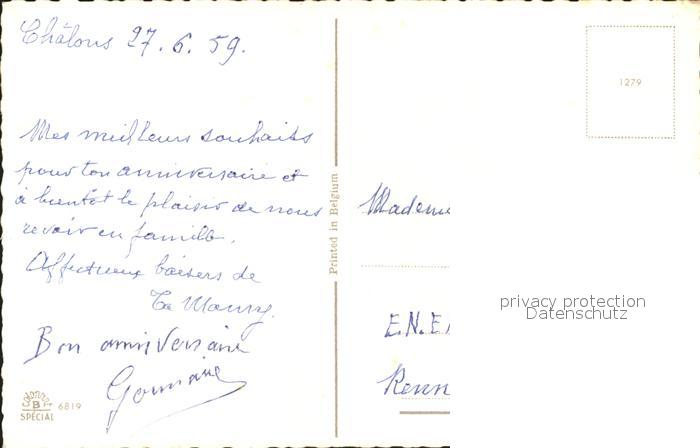 Châlons 27.6.59.
Mes meilleurs souhaits
pour ton anniversaire et
à bientôt le plaisir de nous
revoir en famille.
Affectueux baisers de
Ta
Bon anniversaire
Germaine
Colorprint
B
SPECIAL
6819
Printed in Belgium
1279
Mademo
E.N.E
Renn
privacy protection
Datenschutz